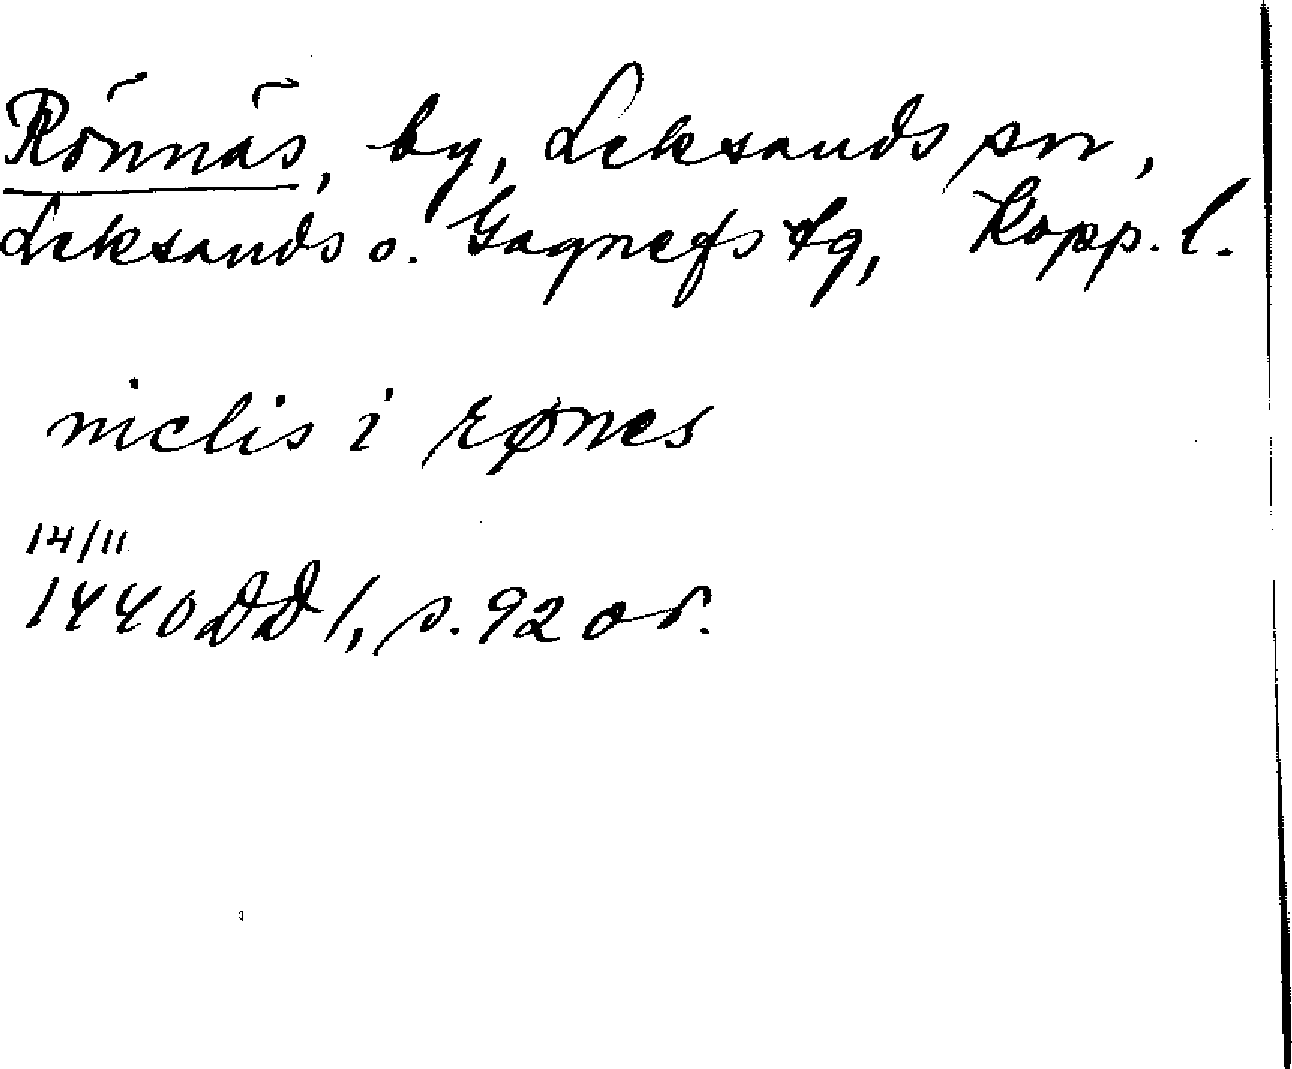 Rönnäs, by, Leksands sn,
Leksands o. Gagnefs tg, Kopp. l.
niclis i rønes
14/11
1440 DD 1, s. 92 or.